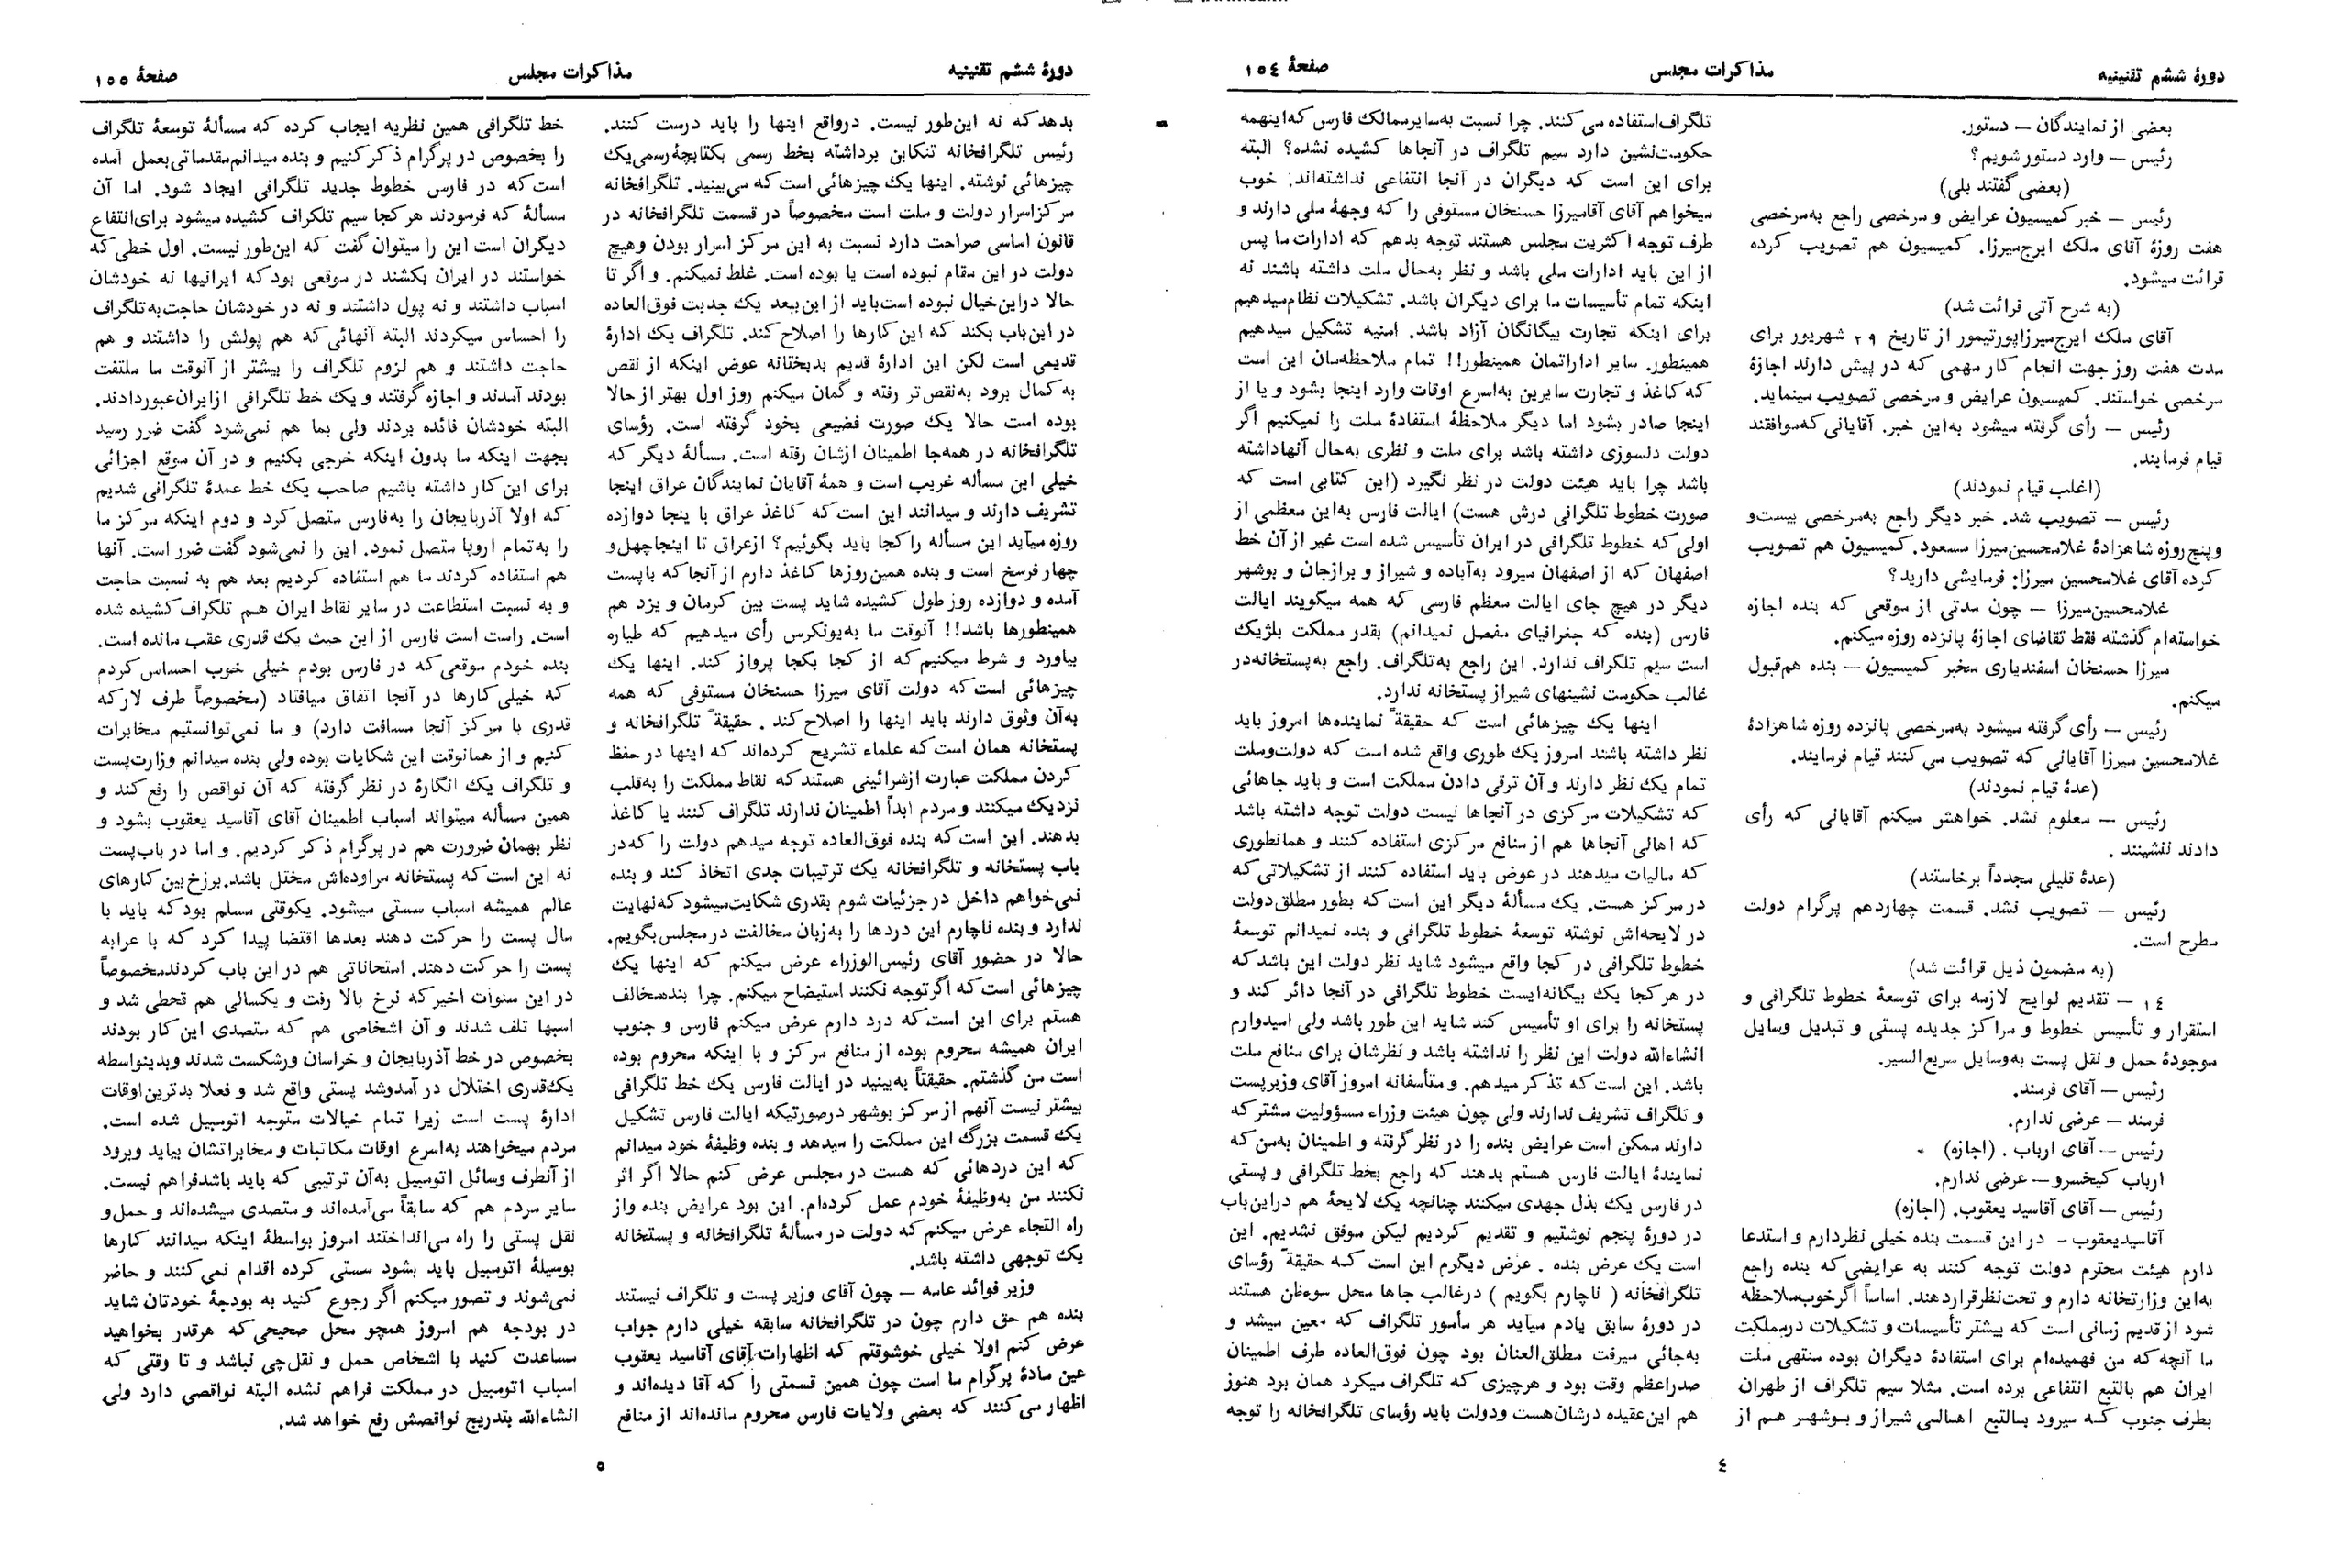 دورهٔ ششم تقنینیه
مذاکرات مجلس
صفحهٔ ١٥٤
بعضی از نمایندگان — دستور.
رئیس — وارد دستور شویم؟
(بعضی گفتند بلی)
رئیس — خبر کمیسیون عرایض و مرخصی راجع به‌مرخصی
هفت روزهٔ آقای ملک ایرج‌میرزا. کمیسیون هم تصویب کرده
قرائت میشود.
(به شرح آتی قرائت شد)
آقای ملک ایرج‌میرزاپورتیمور از تاریخ ٢٩ شهریور برای
مدت هفت روز جهت انجام کار مهمی که در پیش دارند اجازهٔ
مرخصی خواستند. کمیسیون عرایض و مرخصی تصویب مینماید.
رئیس — رأی گرفته میشود به‌این خبر. آقایانی که‌موافقند
قیام فرمایند.
(اغلب قیام نمودند)
رئیس — تصویب شد. خبر دیگر راجع به‌مرخصی بیست‌و
وپنج روزه شاهزادهٔ غلامحسین‌میرزا مسعود. کمیسیون هم تصویب
کرده آقای غلامحسین میرزا: فرمایشی دارید؟
غلامحسین‌میرزا — چون مدتی از موقعی که بنده اجازه
خواسته‌ام گذشته فقط تقاضای اجازهٔ پانزده روزه میکنم.
میرزا حسنخان اسفندیاری مخبر کمیسیون — بنده هم‌قبول
میکنم.
رئیس — رأی گرفته میشود به‌مرخصی پانزده روزه شاهزادهٔ
غلامحسین میرزا آقایانی که تصویب می کنند قیام فرمایند.
(عدهٔ قیام نمودند)
رئیس — معلوم نشد. خواهش میکنم آقایانی که رأی
دادند ننشینند .
(عدهٔ قلیلی مجدداً برخاستند)
رئیس — تصویب نشد. قسمت چهاردهم پرگرام دولت
مطرح است.
(به مضمون ذیل قرائت شد)
١٤ — تقدیم لوایح لازمه برای توسعهٔ خطوط تلگرافی و
استقرار و تأسیس خطوط و مراکز جدیده پستی و تبدیل وسایل
موجودهٔ حمل و نقل پست به‌وسایل سریع‌السیر.
رئیس — آقای فرمند.
فرمند — عرضی ندارم.
رئیس — آقای ارباب . (اجازه)
ارباب کیخسرو — عرضی ندارم.
رئیس — آقای آقاسید یعقوب. (اجازه)
آقاسیدیعقوب - در این قسمت بنده خیلی نظردارم و استدعا
دارم هیئت محترم دولت توجه کنند به عرایضی که بنده راجع
به‌این وزارتخانه دارم و تحت‌نظرقراردهند. اساساً اگرخوب‌ملاحظه
شود از قدیم زمانی است که بیشتر تأسیسات و تشکیلات درمملکت
ما آنچه که من فهمیده‌ام برای استفادهٔ دیگران بوده منتهی ملت
ایران هم بالتبع انتفاعی برده است. مثلا سیم تلگراف از طهران
بطرف جنوب که میرود بالتبع اهالی شیراز و بوشهر هم از
تلگراف‌استفاده می کنند. چرا نسبت به‌سایرممالک فارس که‌اینهمه
حکومت‌نشین دارد سیم تلگراف در آنجاها کشیده نشده؟ البته
برای این است که دیگران در آنجا انتفاعی نداشته‌اند. خوب
میخواهم آقای آقامیرزا حسنخان مستوفی را که وجههٔ ملی دارند و
طرف توجه اکثریت مجلس هستند توجه بدهم که ادارات ما پس
از این باید ادارات ملی باشد و نظر به‌حال ملت داشته باشند نه
اینکه تمام تأسیسات ما برای دیگران باشد. تشکیلات نظام‌میدهیم
برای اینکه تجارت بیگانگان آزاد باشد. امنیه تشکیل میدهیم
همینطور. سایر اداراتمان همینطور!! تمام ملاحظه‌مان این است
که کاغذ و تجارت سایرین به‌اسرع اوقات وارد اینجا بشود و یا از
اینجا صادر بشود اما دیگر ملاحظهٔ استفادهٔ ملت را نمیکنیم اگر
دولت دلسوزی داشته باشد برای ملت و نظری به‌حال آنهاداشته
باشد چرا باید هیئت دولت در نظر نگیرد (این کتابی است که
صورت خطوط تلگرافی درش هست) ایالت فارس به‌این معظمی از
اولی که خطوط تلگرافی در ایران تأسیس شده است غیر از آن خط
اصفهان که از اصفهان میرود به‌آباده و شیراز و برازجان و بوشهر
دیگر در هیچ جای ایالت معظم فارسی که همه میگویند ایالت
فارس (بنده که جغرافیای مفصل نمیدانم) بقدر مملکت بلژیک
است سیم تلگراف ندارد. این راجع به‌تلگراف. راجع به‌پستخانه‌در
غالب حکومت نشینهای شیراز پستخانه ندارد.
اینها یک چیزهائی است که حقیقةً نماینده‌ها امروز باید
نظر داشته باشند امروز یک طوری واقع شده است که دولت‌وملت
تمام یک نظر دارند و آن ترقی دادن مملکت است و باید جاهائی
که تشکیلات مرکزی در آنجاها نیست دولت توجه داشته باشد
که اهالی آنجاها هم از منافع مرکزی استفاده کنند و همانطوری
که مالیات میدهند در عوض باید استفاده کنند از تشکیلاتی که
در مرکز هست. یک مسألهٔ دیگر این است که بطور مطلق‌دولت
در لایحه‌اش نوشته توسعهٔ خطوط تلگرافی و بنده نمیدانم توسعهٔ
خطوط تلگرافی در کجا واقع میشود شاید نظر دولت این باشد که
در هر کجا یک بیگانه‌ایست خطوط تلگرافی در آنجا دائر کند و
پستخانه را برای او تأسیس کند شاید این طور باشد ولی امیدوارم
انشاءالله دولت این نظر را نداشته باشد و نظرشان برای منافع ملت
باشد. این است که تذکر میدهم. و متأسفانه امروز آقای وزیرپست
و تلگراف تشریف ندارند ولی چون هیئت وزراء مسؤولیت مشترکه
دارند ممکن است عرایض بنده را در نظر گرفته و اطمینان به‌من که
نمایندهٔ ایالت فارس هستم بدهند که راجع بخط تلگرافی و پستی
در فارس یک بذل جهدی میکنند چنانچه یک لایحهٔ هم دراین‌باب
در دورهٔ پنجم نوشتیم و تقدیم کردیم لیکن موفق نشدیم. این
است یک عرض بنده . عرض دیگرم این است که حقیقةً رؤسای
تلگرافخانه ( ناچارم بگویم ) درغالب جاها محل سوءظن هستند
در دورهٔ سابق یادم میآید هر مأمور تلگراف که معین میشد و
به‌جائی میرفت مطلق‌العنان بود چون فوق‌العاده طرف اطمینان
صدراعظم وقت بود و هرچیزی که تلگراف میکرد همان بود هنوز
هم این‌عقیده درشان‌هست ودولت باید رؤسای تلگرافخانه را توجه
٤
دورهٔ ششم تقنینیه
مذاکرات مجلس
صفحهٔ ١٥٥
بدهد که نه این‌طور نیست. درواقع اینها را باید درست کنند.
رئیس تلگرافخانه تنکابن برداشته بخط رسمی بکتابچهٔ رسمی‌یک
چیزهائی نوشته. اینها یک چیزهائی است که می‌بینید. تلگرافخانه
مرکزاسرار دولت و ملت است مخصوصاً در قسمت تلگرافخانه در
قانون اساسی صراحت دارد نسبت به این مرکز اسرار بودن وهیچ
دولت در این مقام نبوده است یا بوده است. غلط نمیکنم. و اگر تا
حالا دراین‌خیال نبوده است‌باید از این‌ببعد یک جدیت فوق‌العاده
در این‌باب بکند که این کارها را اصلاح کند. تلگراف یک ادارهٔ
قدیمی است لکن این ادارهٔ قدیم بدبختانه عوض اینکه از نقص
به کمال برود به‌نقص‌تر رفته و گمان میکنم روز اول بهتر از حالا
بوده است حالا یک صورت فضیعی بخود گرفته است. رؤسای
تلگرافخانه در همه‌جا اطمینان ازشان رفته است. مسألهٔ دیگر که
خیلی این مسأله غریب است و همهٔ آقایان نمایندگان عراق اینجا
تشریف دارند و میدانند این است که کاغذ عراق با ینجا دوازده
روزه میآید این مسأله را کجا باید بگوئیم؟ ازعراق تا اینجاچهل‌و
چهار فرسخ است و بنده همین روزها کاغذ دارم از آنجا که باپست
آمده و دوازده روز طول کشیده شاید پست بین کرمان و یزد هم
همینطورها باشد!! آنوقت ما به‌یونکرس رأی میدهیم که طیاره
بیاورد و شرط میکنیم که از کجا بکجا پرواز کند. اینها یک
چیزهائی است که دولت آقای میرزا حسنخان مستوفی که همه
به‌آن وثوق دارند باید اینها را اصلاح کند . حقیقةً تلگرافخانه و
پستخانه همان است که علماء تشریح کرده‌اند که اینها در حفظ
کردن مملکت عبارت ازشرائینی هستند که نقاط مملکت را به‌قلب
نزدیک میکنند و مردم ابداً اطمینان ندارند تلگراف کنند یا کاغذ
بدهند. این است که بنده فوق‌العاده توجه میدهم دولت را که‌در
باب پستخانه و تلگرافخانه یک ترتیبات جدی اتخاذ کند و بنده
نمی‌خواهم داخل در جزئیات شوم بقدری شکایت‌میشود که‌نهایت
ندارد و بنده ناچارم این دردها را به‌زبان مخالفت در مجلس بگویم.
حالا در حضور آقای رئیس‌الوزراء عرض میکنم که اینها یک
چیزهائی است که اگرتوجه نکنند استیضاح میکنم. چرا بنده‌مخالف
هستم برای این است که درد دارم عرض میکنم فارس و جنوب
ایران همیشه محروم بوده از منافع مرکز و با اینکه محروم بوده
است من گذشتم. حقیقتاً به‌بینید در ایالت فارس یک خط تلگرافی
بیشتر نیست آنهم از مرکز بوشهر درصورتیکه ایالت فارس تشکیل
یک قسمت بزرگ این مملکت را میدهد و بنده وظیفهٔ خود میدانم
که این دردهائی که هست در مجلس عرض کنم حالا اگر اثر
نکنند من به‌وظیفهٔ خودم عمل کرده‌ام. این بود عرایض بنده واز
راه التجاء عرض میکنم که دولت در مسألهٔ تلگرافخانه و پستخانه
یک توجهی داشته باشد.
وزیر فوائد عامه — چون آقای وزیر پست و تلگراف نیستند
بنده هم حق دارم چون در تلگرافخانه سابقه خیلی دارم جواب
عرض کنم اولا خیلی خوشوقتم که اظهارات آقای آقاسید یعقوب
عین مادهٔ پرگرام ما است چون همین قسمتی را که آقا دیده‌اند و
اظهار می کنند که بعضی ولایات فارس محروم مانده‌اند از منافع
خط تلگرافی همین نظریه ایجاب کرده که مسألهٔ توسعهٔ تلگراف
را بخصوص در پرگرام ذکر کنیم و بنده میدانم‌مقدماتی‌بعمل آمده
است که در فارس خطوط جدید تلگرافی ایجاد شود. اما آن
مسألهٔ که فرمودند هرکجا سیم تلگراف کشیده میشود برای‌انتفاع
دیگران است این را میتوان گفت که این‌طور نیست. اول خطی که
خواستند در ایران بکشند در موقعی بود که ایرانیها نه خودشان
اسباب داشتند و نه پول داشتند و نه در خودشان حاجت‌به‌تلگراف
را احساس میکردند البته آنهائی که هم پولش را داشتند و هم
حاجت داشتند و هم لزوم تلگراف را بیشتر از آنوقت ما ملتفت
بودند آمدند و اجازه گرفتند و یک خط تلگرافی ازایران‌عبوردادند.
البته خودشان فائده بردند ولی بما هم نمی‌شود گفت ضرر رسید
بجهت اینکه ما بدون اینکه خرجی بکنیم و در آن موقع اجزائی
برای این کار داشته باشیم صاحب یک خط عمدهٔ تلگرافی شدیم
که اولا آذربایجان را به‌فارس متصل کرد و دوم اینکه مرکز ما
را به‌تمام اروپا متصل نمود. این را نمی‌شود گفت ضرر است. آنها
هم استفاده کردند ما هم استفاده کردیم بعد هم به نسبت حاجت
و به نسبت استطاعت در سایر نقاط ایران هم تلگراف کشیده شده
است. راست است فارس از این حیث یک قدری عقب مانده است.
بنده خودم موقعی که در فارس بودم خیلی خوب احساس کردم
که خیلی کارها در آنجا اتفاق میافتاد (مخصوصاً طرف لار که
قدری با مرکز آنجا مسافت دارد) و ما نمی‌توانستیم مخابرات
کنیم و از همانوقت این شکایات بوده ولی بنده میدانم وزارت‌پست
و تلگراف یک انگارهٔ در نظر گرفته که آن نواقص را رفع کند و
همین مسأله میتواند اسباب اطمینان آقای آقاسید یعقوب بشود و
نظر بهمان ضرورت هم در پرگرام ذکر کردیم. و اما در باب‌پست
نه این است که پستخانه مراوده‌اش مختل باشد. برزخ بین کارهای
عالم همیشه اسباب سستی میشود. یکوقتی مسلم بود که باید با
مال پست را حرکت دهند بعدها اقتضا پیدا کرد که با عرابه
پست را حرکت دهند. امتحاناتی هم در این باب کردندمخصوصاً
در این سنوات اخیر که نرخ بالا رفت و یکسالی هم قحطی شد و
اسبها تلف شدند و آن اشخاصی هم که متصدی این کار بودند
بخصوص در خط آذربایجان و خراسان ورشکست شدند وبدینواسطه
یک‌قدری اختلال در آمدوشد پستی واقع شد و فعلا بدترین‌اوقات
ادارهٔ پست است زیرا تمام خیالات متوجه اتومبیل شده است.
مردم میخواهند به‌اسرع اوقات مکاتبات و مخابراتشان بیاید وبرود
از آنطرف وسائل اتومبیل به‌آن ترتیبی که باید باشدفراهم نیست.
سایر مردم هم که سابقاً می‌آمده‌اند و متصدی میشده‌اند و حمل‌و
نقل پستی را راه می‌انداختند امروز بواسطهٔ اینکه میدانند کارها
بوسیلهٔ اتومبیل باید بشود سستی کرده اقدام نمی کنند و حاضر
نمی‌شوند و تصور میکنم اگر رجوع کنید به بودجهٔ خودتان شاید
در بودجه هم امروز همچو محل صحیحی که هرقدر بخواهید
مساعدت کنید با اشخاص حمل و نقل‌چی نباشد و تا وقتی که
اسباب اتومبیل در مملکت فراهم نشده البته نواقصی دارد ولی
انشاءالله بتدریج نواقصش رفع خواهد شد.
٥